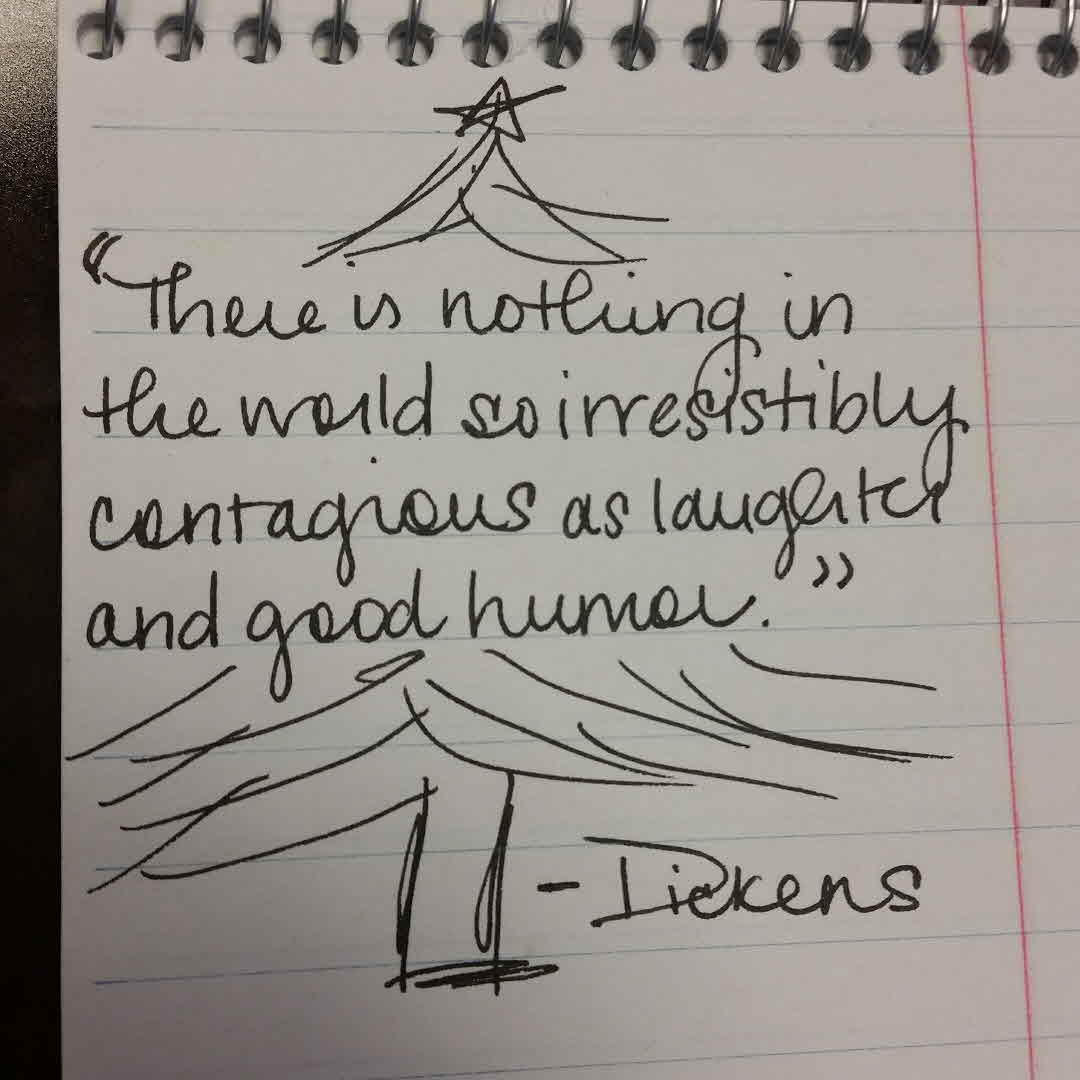 “There is nothing in
the world so irresistibly
contagious as laughter
and good humor.”
- Dickens